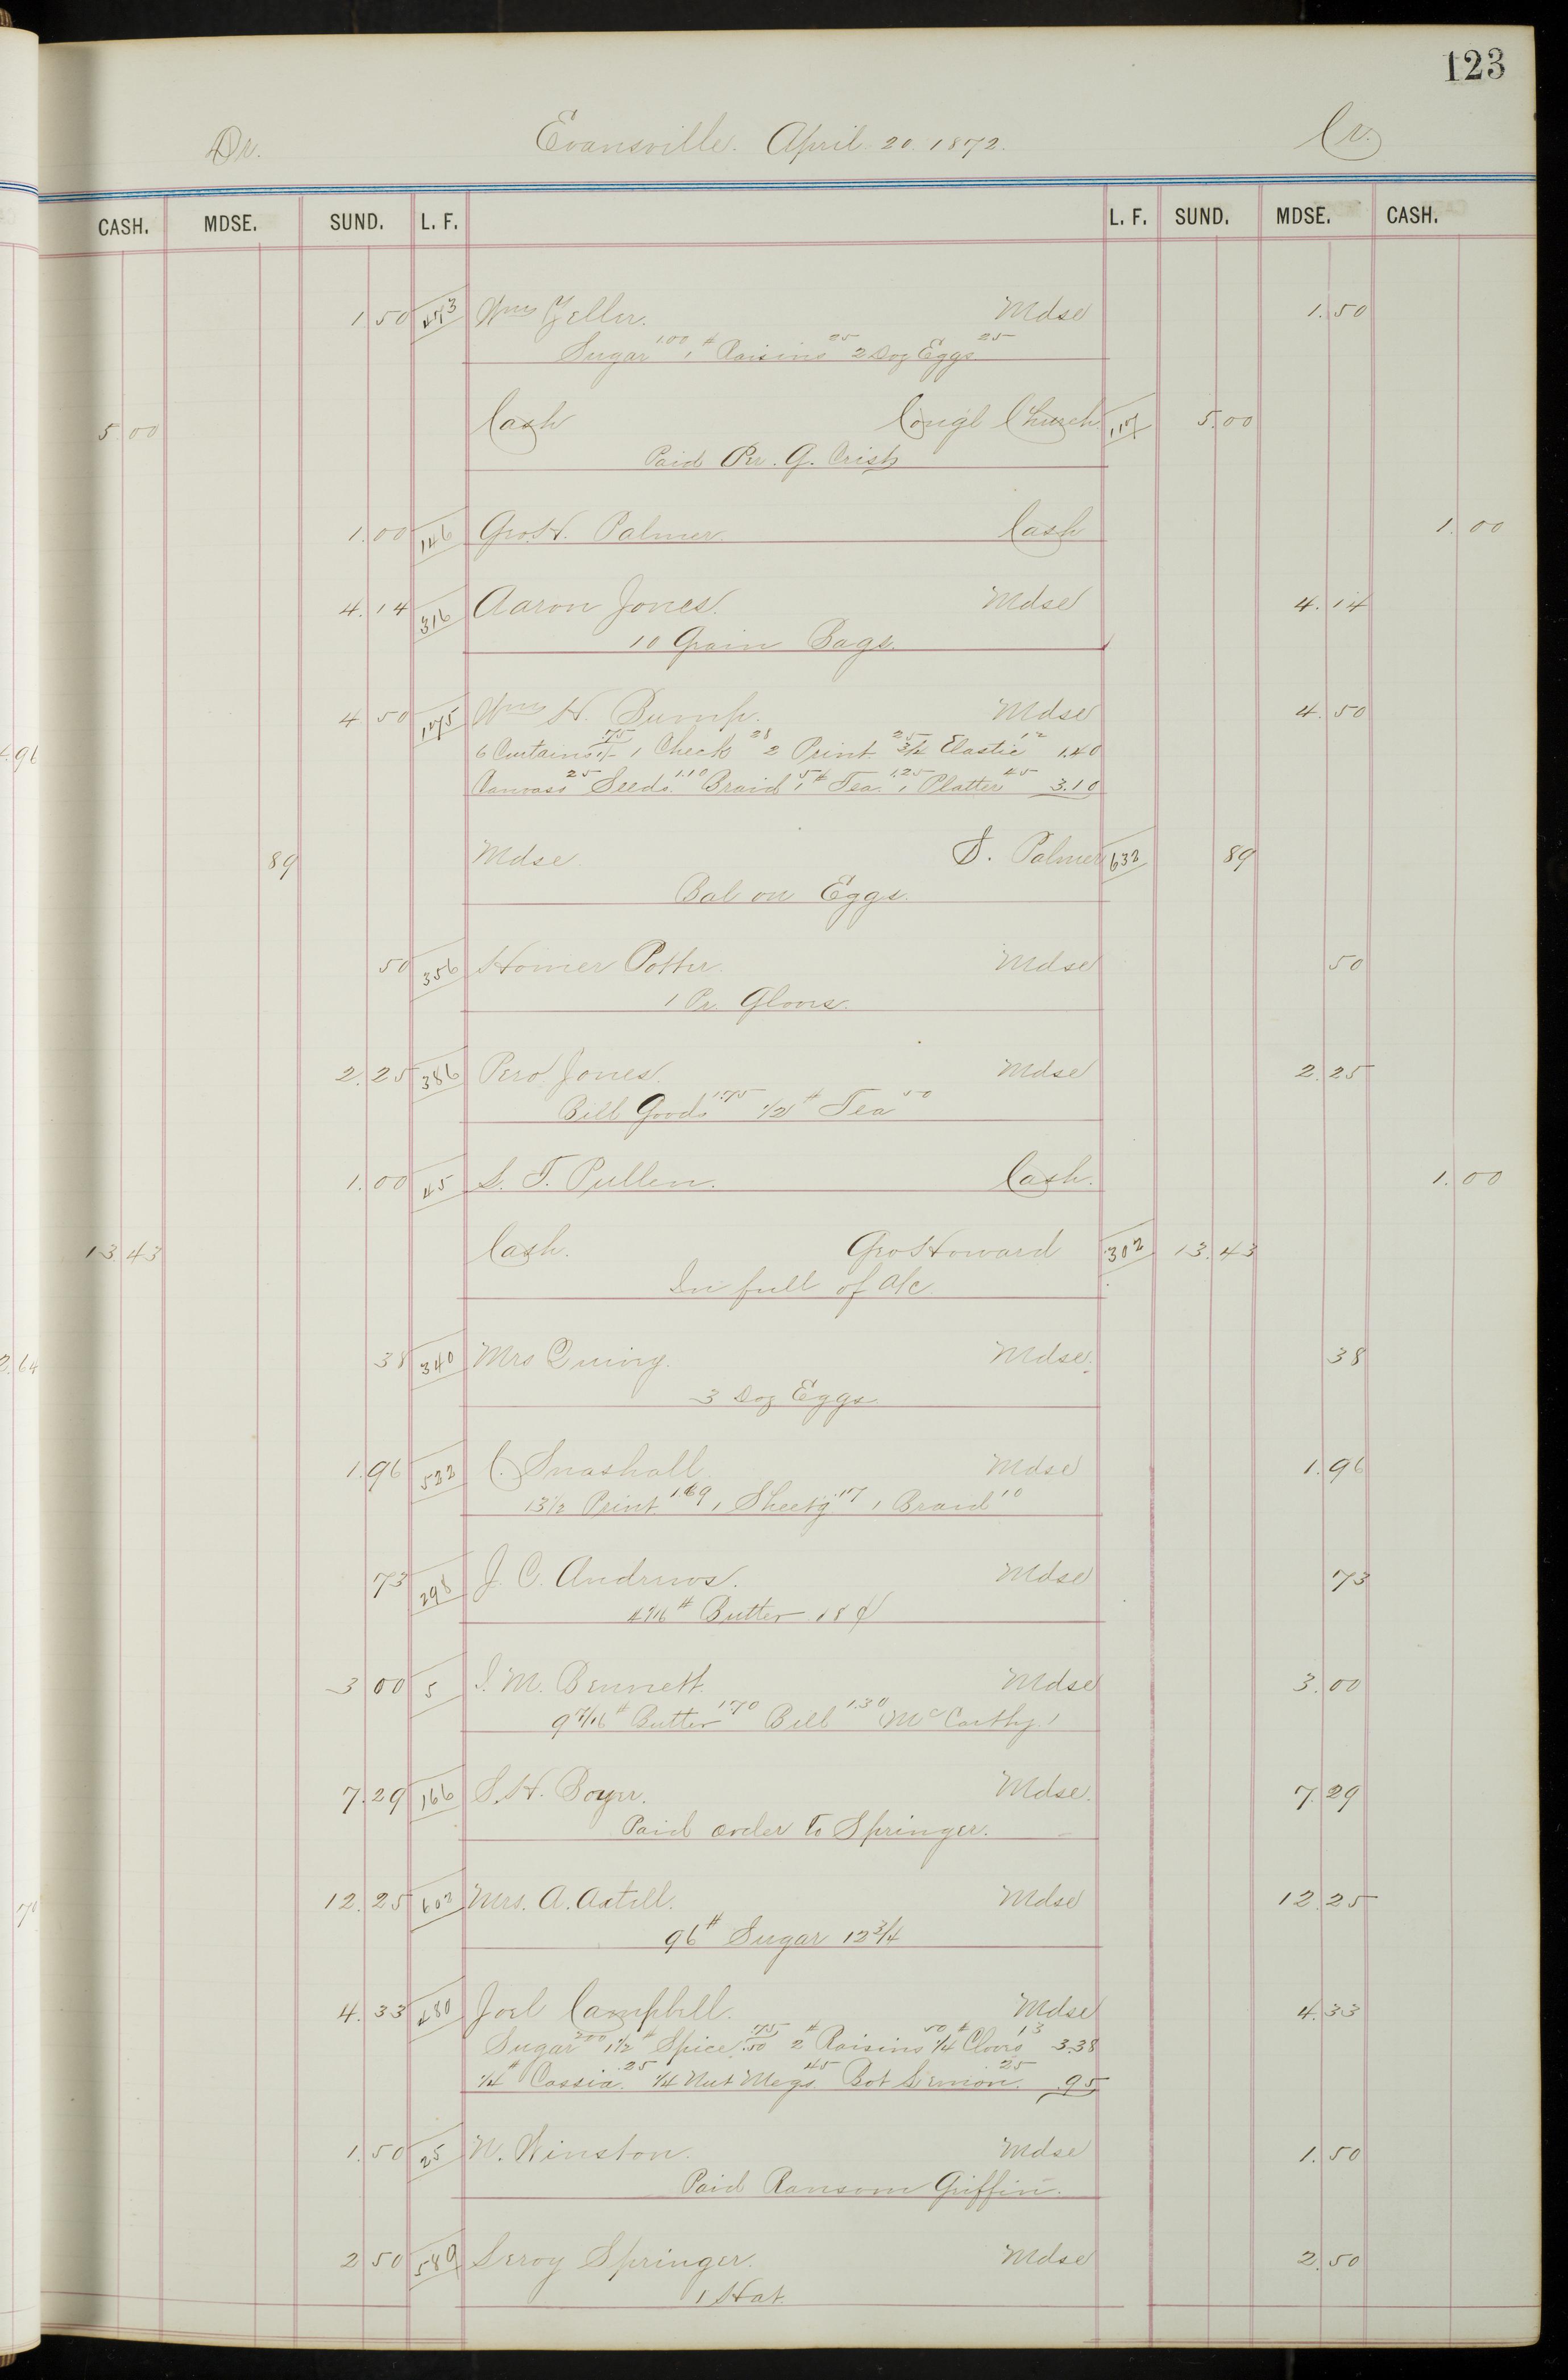 123
Dr. Evansville. April 20. 1872. Cr.
CASH. MDSE. SUND. L. F. L. F. SUND. MDSE. CASH.
1 50 Wm Zeller. Mdse 1.50
Sugar 1.00 1# Raisins 25 2 Doz Eggs 25
5.00 Cash Cong'l Church 117 5.00
Paid Pr. G. Crisp
1.00 146 Geo H. Palmer. Cash 1.00
4.14 316 Aaron Jones. Mdse 4.14
10 Grain Bags.
4 50 175 Wm H. Bump. Mdse 4.50
6 Curtains 1/- 75 1 Check 28 2 Print 25 3/4 Elastic 12 1.40
Canvass 25 Seeds 1.10 Braid 5 1# Tea 1.25 1 Platter 45 3.10
89 Mdse. S. Palmer 632 89
Bal on Eggs.
50 356 Homer Potter. Mdse 50
1 Pr. Gloves.
2.25 386 Pero Jones. Mdse 2.25
Bill Goods 1.75 1/2# Tea 50
1.00 45 S. T. Pullen. Cash. 1.00
13.43 Cash. Geo Howard 302 13.43
In full of a/c
38 340 Mrs Mdse. 38
3 Doz Eggs
1.96 522 C. Snashall Mdse 1.96
13 1/2 Print 1.69 1 Sheet'g .17 1 Braid 10
73 298 J. C. Andrews. Mdse 73
4 1/16# Butter 18¢
3 00 5 I. M. Bennett. Mdse 3.00
9 7/16# Butter 1.70 Bill 1.30 (McCarthy.)
7.29 166 S. H. Boyer. Mdse. 7.29
Paid order to Springer.
12.25 602 Mrs. A. Axtell. Mdse 12.25
96# Sugar 12 3/4
4.33 480 Joel Campbell. Mdse 4.33
Sugar 2.00 1 1/2# Spice .50 75 2# Raisins 50 1/4# Cloves 13 3.38
1/4# Cassia .25 1/4 Nut Megs. 45 Bot Lemon. 25 .95
1.50 25 N. Winston. Mdse 1.50
Paid Ransom Griffin.
2 50 589 Leroy Springer. Mdse 2.50
1 Hat.